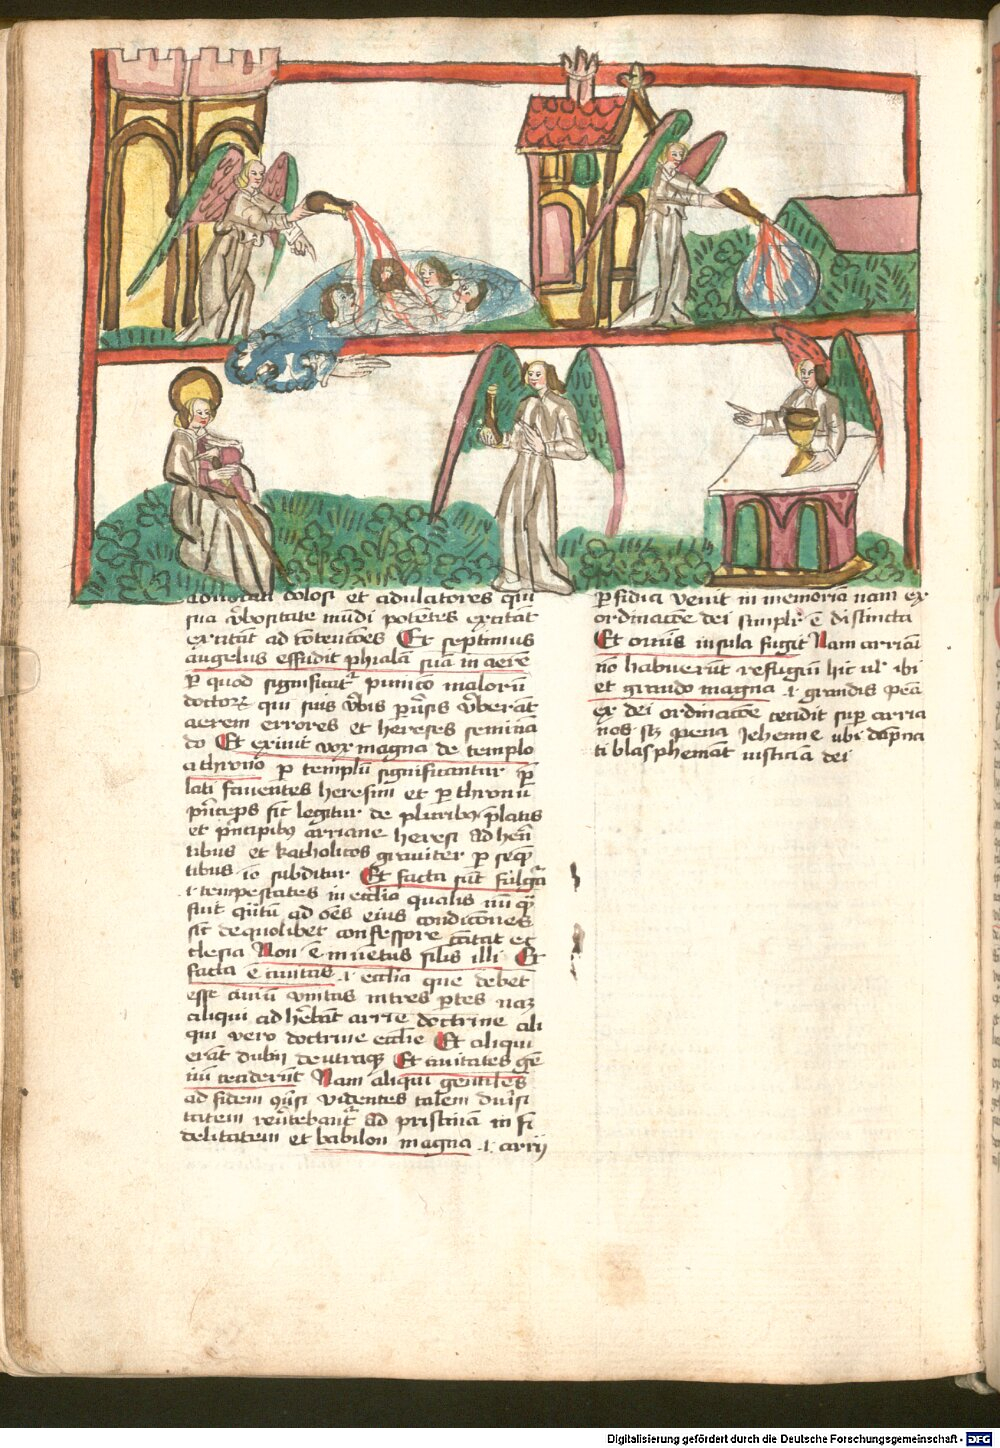 aduocati dolosi et adulatores qui
sua v̄bositate mūdi potētes excitāt
excitāt ad cōtencōes Et septimus
angelus effudit phialā suā in aerē
ꝑ quod significat᷑ punico malorū
doctoꝝ qui suis v̄bis ꝑuersis v̄berāt
aerem errores et hereses seminā
do Et exiuit vox magna de templo
a throno ꝑ templū significantur p̄
lati fauentes heresim et ꝑ thronū
pⁱnceps sic legitur de pluribꝰ p̄latis
et pⁱncipibꝰ arriane heresi ad herē
tibus et katholicos grauiter ꝑ seq̄
tibus iō subditur Et facta sūt fulgᵃ
.i. tempestates in ecclīa qualis nūqᵃ
fuit qⁱ̄tū ad oēs eius condicōnes
sic de quolibet confessore cātat ec
clesia Non ē inuētus silis illi Et
facta ē ciuitas .i. ecclīa que debet
esse ciuiū vnitas in tres ꝑtes naꝫ
aliqui ad herēt arrie doctrine ali
qui vero doctrine ecclīe Et aliqui
erāt dubij de utraqꝫ Et ciuitates gē
tiū ceciderūt Nam aliqui gentiles
ad fidem ꝯuersi videntes talem diuⁱsi
tatem reūtebant᷑ ad pristinā in fi
delitatem et babilon magna .i. arrij
ꝑfidia venit in memoria nam ex
ordinacōe dei simplr̄ ē distincta
Et omīs insula fugit Nam arriāi
nō habuerūt refugiū hic ul' ibi
et grando magna .i. grandis pēa
ex dei ordinacōe cecidit suꝑ arria
nos sꝫ pena Jehenne ubi dāpna
ti blasphemāt iusticiā dei
Digitalisierung gefördert durch die Deutsche Forschungsgemeinschaft - DFG